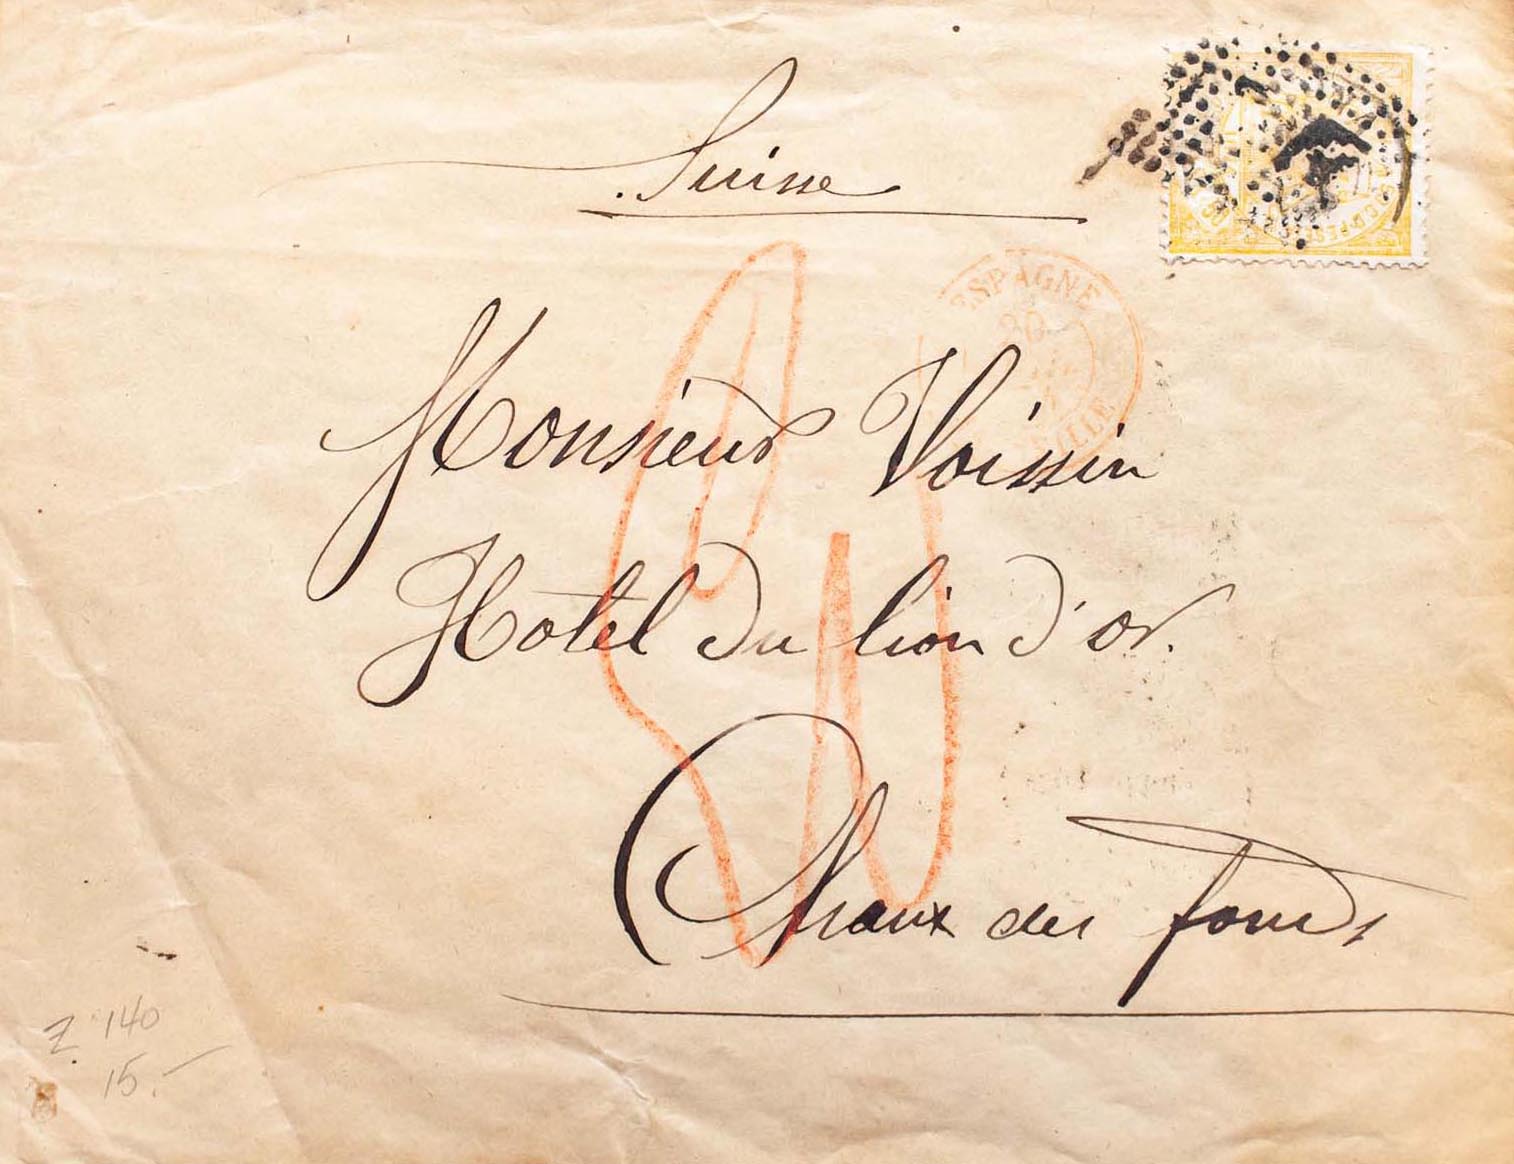 Suisse
ESPAGNE
30
Monsieur Voissin
Hotel du lion d'or.
Chaux des fonds
Z 140
15.-